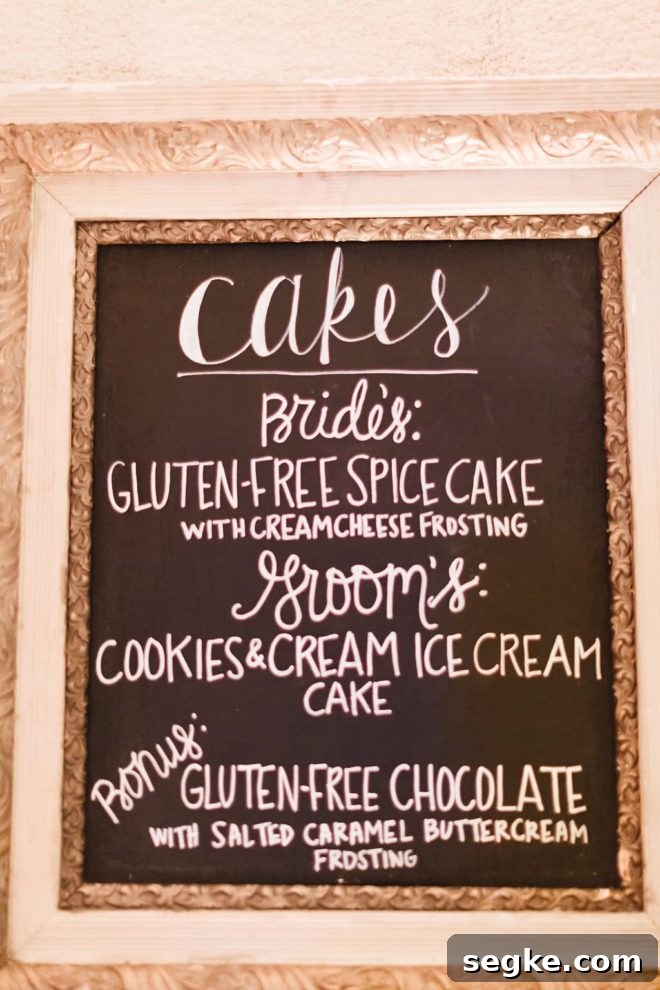 Cakes
Bride's:
GLUTEN-FREE SPICE CAKE
WITH CREAM CHEESE FROSTING
Groom's:
COOKIES & CREAM ICE CREAM
CAKE
Bonus:
GLUTEN-FREE CHOCOLATE
WITH SALTED CARAMEL BUTTERCREAM
FROSTING
segke.com